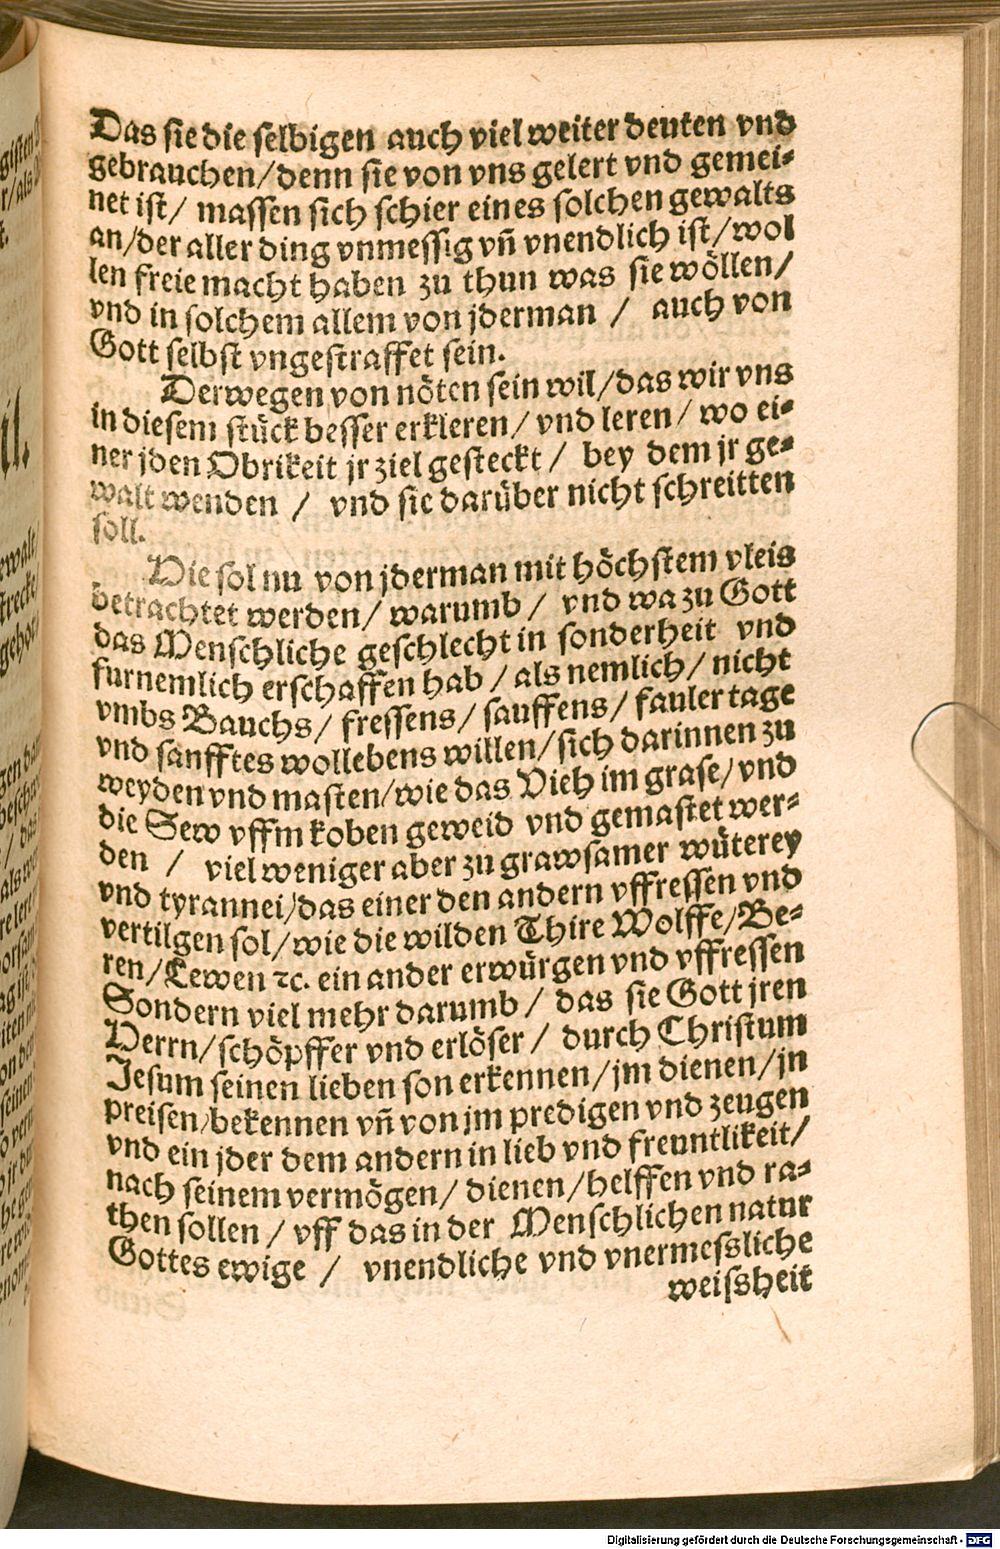 Das sie die selbigen auch viel weiter deuten vnd
gebrauchen/denn sie von vns gelert vnd gemei-
net ist/ massen sich schier eines solchen gewalts
an/der aller ding vnmessig vñ vnendlich ist/wol
len freie macht haben zu thun was sie wöllen/
vnd in solchem allem von jderman / auch von
Gott selbst vngestraffet sein.
Derwegen von nöten sein wil/das wir vns
in diesem stück besser erkleren/ vnd leren/ wo ei-
ner jden Obrikeit jr ziel gesteckt/ bey dem jr ge-
walt wenden / vnd sie darüber nicht schreitten
soll.
Hie sol nu von jderman mit höchstem vleis
betrachtet werden/ warumb/ vnd wa zu Gott
das Menschliche geschlecht in sonderheit vnd
furnemlich erschaffen hab/als nemlich/ nicht
vmbs Bauchs/ fressens/ sauffens/ fauler tage
vnd sanfftes wollebens willen/sich darinnen zu
weyden vnd masten/wie das Vieh im grase/vnd
die Sew vffm koben geweid vnd gemastet wer-
den / viel weniger aber zu grawsamer wüterey
vnd tyrannei/das einer den andern vffressen vnd
vertilgen sol/wie die wilden Thire Wolffe/Be-
ren/Lewen ꝛc. ein ander erwürgen vnd vffressen
Sondern viel mehr darumb/ das sie Gott jren
Herrn/schöpffer vnd erlöser/ durch Christum
Jesum seinen lieben son erkennen/jm dienen/jn
preisen/bekennen vñ von jm predigen vnd zeugen
vnd ein jder dem andern in lieb vnd freuntlikeit/
nach seinem vermögen/ dienen/helffen vnd ra-
then sollen/ vff das in der Menschlichen natur
Gottes ewige / vnendliche vnd vnermessliche
weissheit
Digitalisierung gefördert durch die Deutsche Forschungsgemeinschaft - DFG